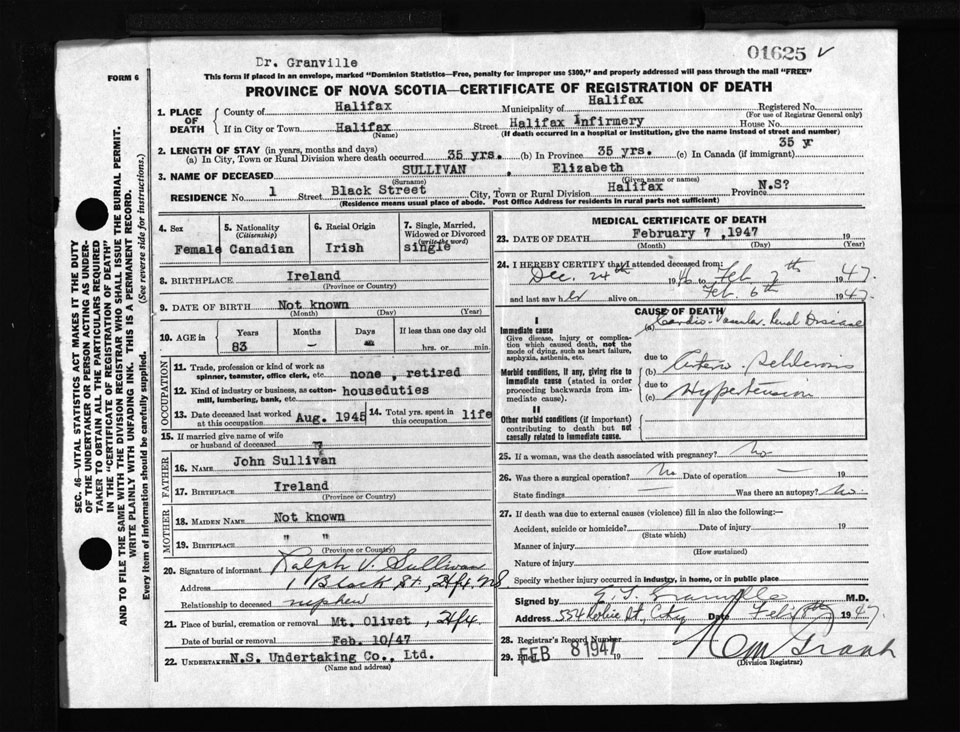 01625 V
Dr. Granville
FORM 6
This form if placed in an envelope, marked "Dominion Statistics—Free, penalty for improper use $300," and properly addressed will pass through the mail "FREE"
PROVINCE OF NOVA SCOTIA—CERTIFICATE OF REGISTRATION OF DEATH
SEC. 46—VITAL STATISTICS ACT MAKES IT THE DUTY
OF THE UNDERTAKER OR PERSON ACTING AS UNDER-
TAKER TO OBTAIN ALL THE PARTICULARS REQUIRED
IN THE "CERTIFICATE OF REGISTRATION OF DEATH"
AND TO FILE THE SAME WITH THE DIVISION REGISTRAR WHO SHALL ISSUE THE BURIAL PERMIT.
WRITE PLAINLY WITH UNFADING INK. THIS IS A PERMANENT RECORD.
Every item of information should be carefully supplied. (See reverse side for instructions.)
1. PLACE OF DEATH County of Halifax Municipality of Halifax Registered No.
(For use of Registrar General only)
If in City or Town Halifax Street Halifax Infirmery House No.
(Name) (If death occurred in a hospital or institution, give the name instead of street and number)
2. LENGTH OF STAY (in years, months and days) 35 yr
(a) In City, Town or Rural Division where death occurred 35 yrs. (b) In Province 35 yrs. (c) In Canada (if immigrant)
3. NAME OF DECEASED SULLIVAN , Elizabeth
(Surname) (Given name or names)
RESIDENCE No. 1 Street Black Street City, Town or Rural Division Halifax Province N.S?
(Residence means usual place of abode. Post Office Address for residents in rural parts not sufficient)
4. Sex Female
5. Nationality (Citizenship) Canadian
6. Racial Origin Irish
7. Single, Married, Widowed or Divorced (write the word) single
8. BIRTHPLACE Ireland
(Province or Country)
9. DATE OF BIRTH Not known
(Month) (Day) (Year)
10. AGE in Years Months Days If less than one day old
83 — — hrs. or min.
OCCUPATION
11. Trade, profession or kind of work as spinner, teamster, office clerk, etc. none , retired
12. Kind of industry or business, as cotton-mill, lumbering, bank, etc. houseduties
13. Date deceased last worked at this occupation Aug. 1945 14. Total yrs. spent in this occupation life
15. If married give name of wife or husband of deceased ?
FATHER
16. NAME John Sullivan
17. BIRTHPLACE Ireland
(Province or Country)
MOTHER
18. MAIDEN NAME Not known
19. BIRTHPLACE " "
(Province or Country)
20. Signature of informant Ralph V. Sullivan
Address 1 Black St., Hfx. NS
Relationship to deceased nephew
21. Place of burial, cremation or removal Mt. Olivet , Hfx.
Date of burial or removal Feb. 10/47
22. UNDERTAKER N.S. Undertaking Co., Ltd.
(Name and address)
MEDICAL CERTIFICATE OF DEATH
23. DATE OF DEATH February 7 ,1947 19
(Month) (Day) (Year)
24. I HEREBY CERTIFY that I attended deceased from:
Dec. 24th 1946 to Feb 7th 1947.
and last saw her alive on Feb. 6th 1947.
CAUSE OF DEATH
I
Immediate cause
Give disease, injury or complication which caused death, not the mode of dying, such as heart failure, asphyxia, asthenia, etc.
(a) Cardio-Vascular-Renal Disease
Morbid conditions, if any, giving rise to immediate cause (stated in order proceeding backwards from immediate cause).
due to
(b) Arterio-Sclerosis
due to
(c) Hypertension
II
Other morbid conditions (if important) contributing to death but not causally related to immediate cause.
25. If a woman, was the death associated with pregnancy? No
26. Was there a surgical operation? No Date of operation — 19
State findings — Was there an autopsy? No.
27. If death was due to external causes (violence) fill in also the following:—
Accident, suicide or homicide? Date of injury 19
(State which)
Manner of injury
(How sustained)
Nature of injury
Specify whether injury occurred in industry, in home, or in public place
Signed by Granville M.D.
Address City Date Feb. 1947.
28. Registrar's Record Number
29. Filed FEB 8 1947 19
(Division Registrar)